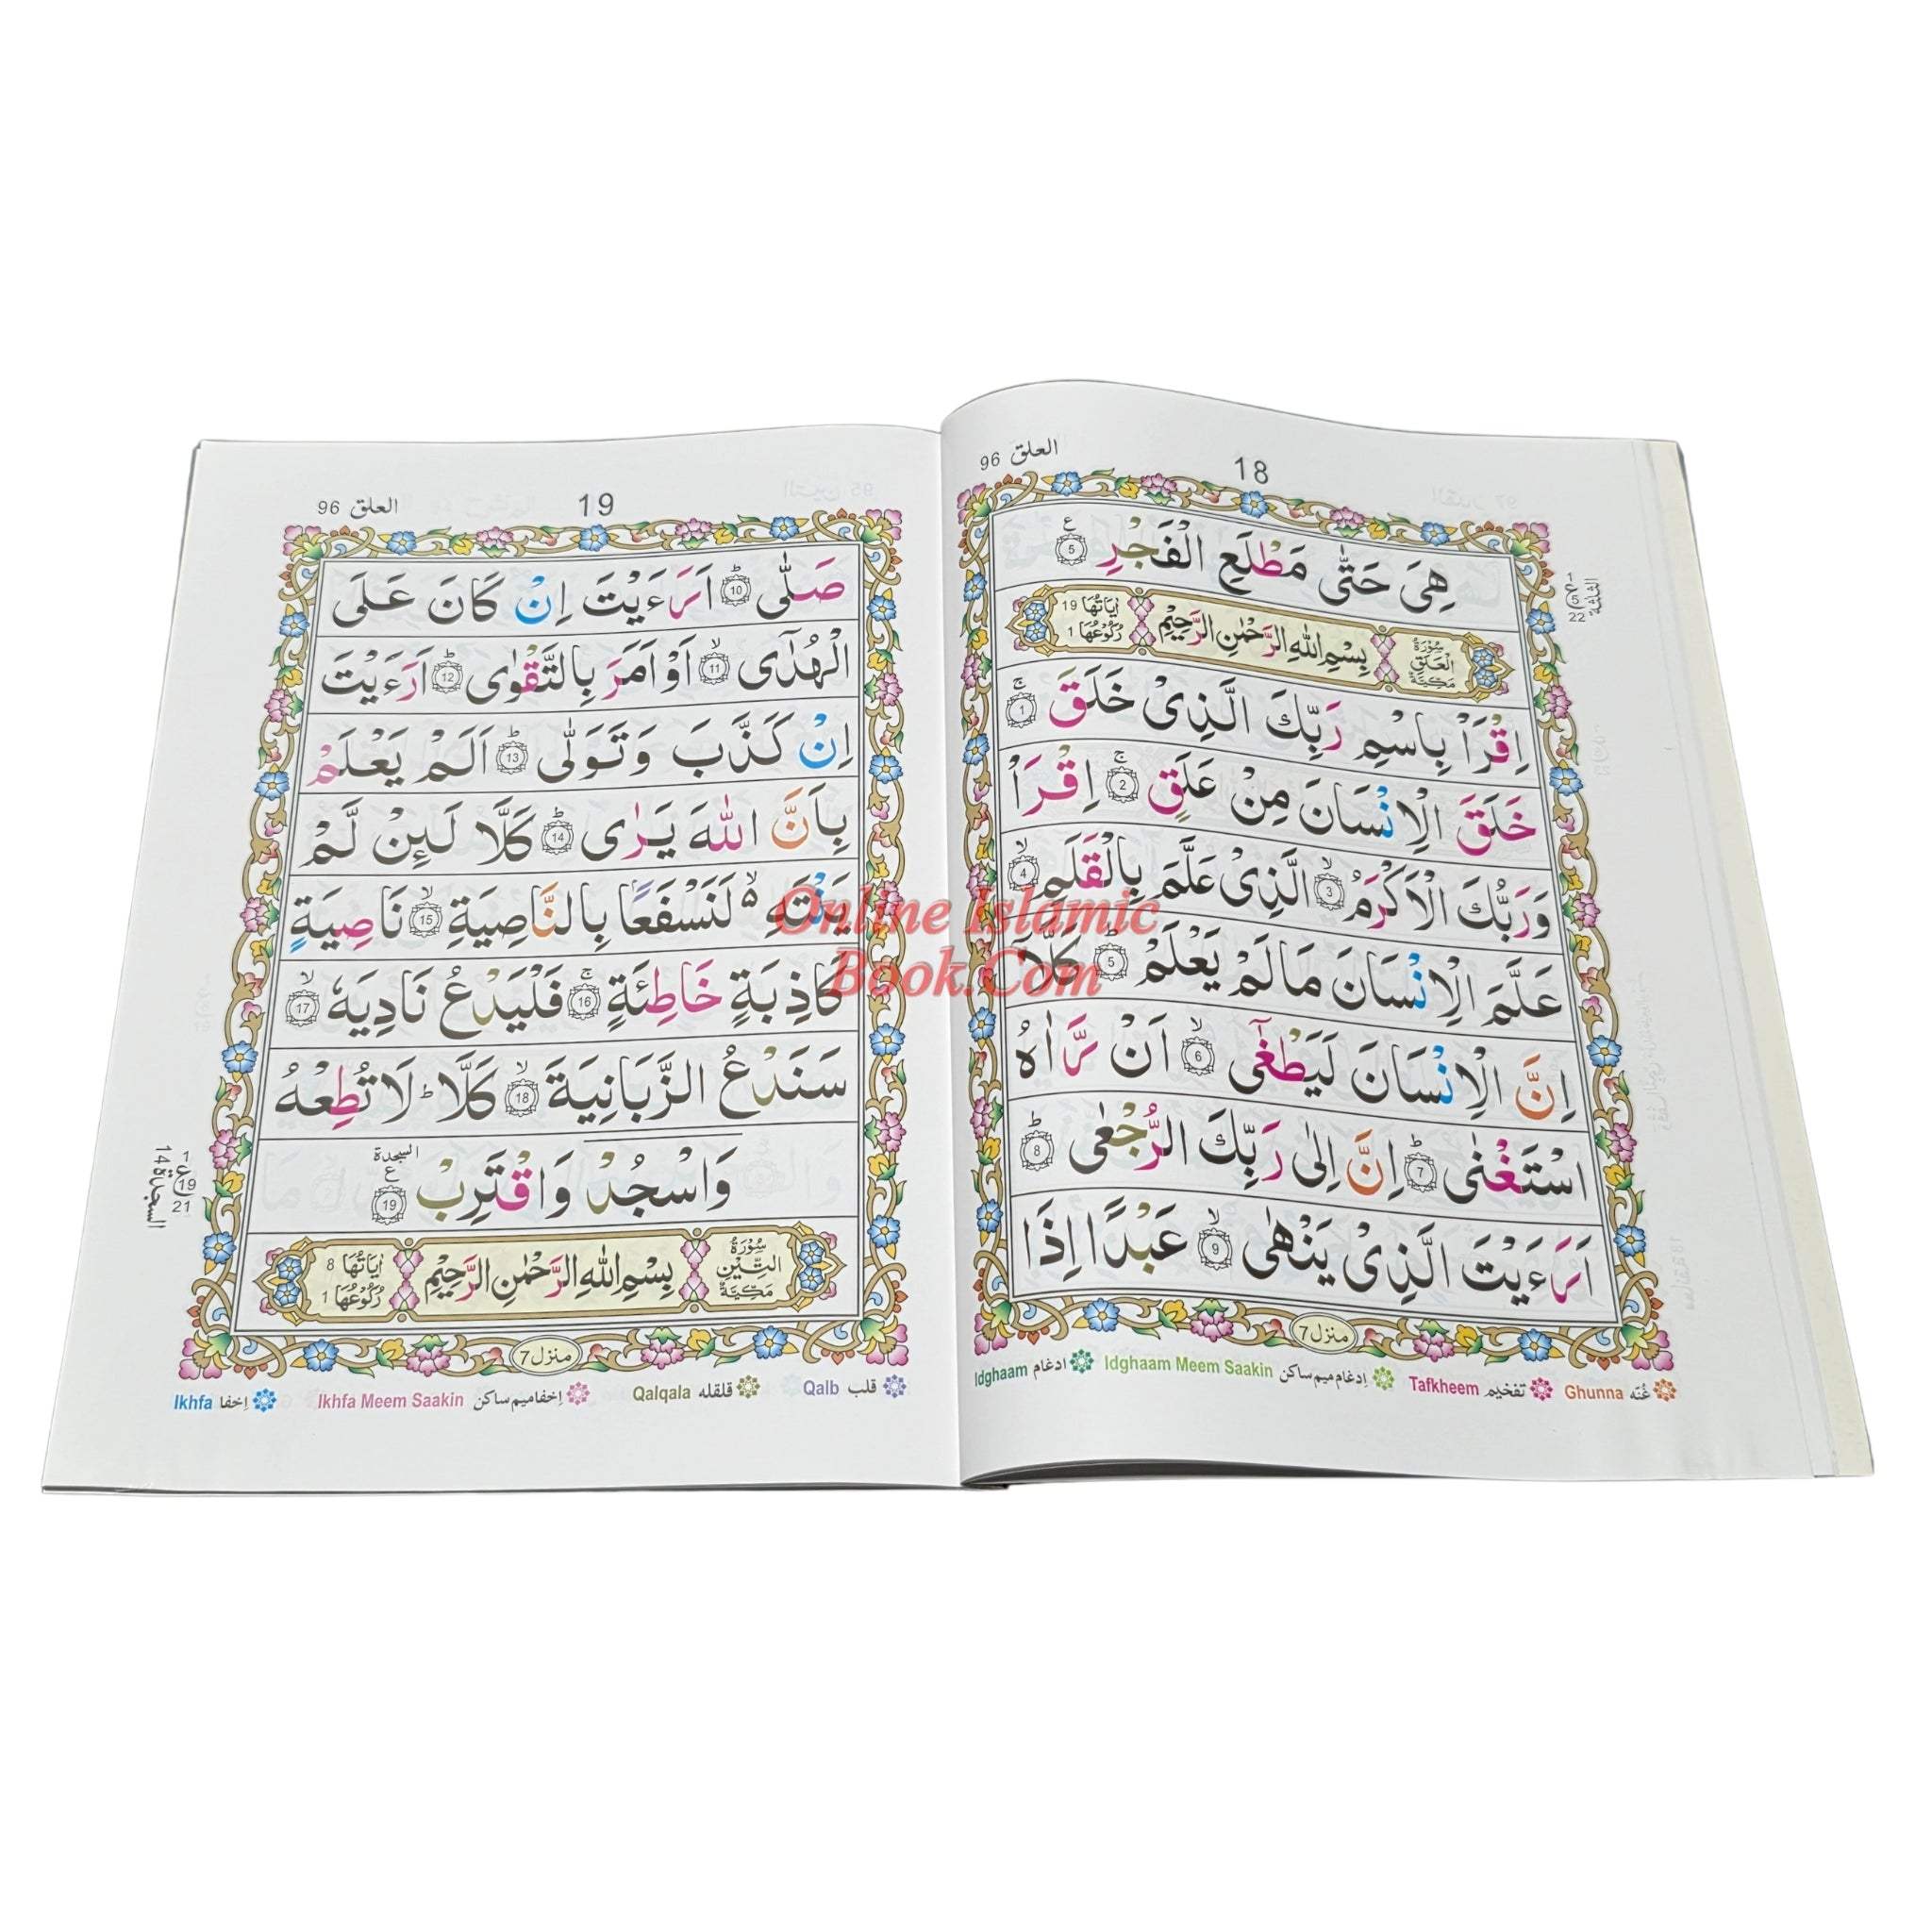 18
العلق 96
هِىَ حَتّٰى مَطْلَعِ الْفَجْرِ 5 ع
سُوْرَةُ الْعَلَقِ مَكِّيَّةٌ
بِسْمِ اللّٰهِ الرَّحْمٰنِ الرَّحِيْمِ
اٰيَاتُهَا 19
رُكُوْعُهَا 1
اِقْرَاْ بِاسْمِ رَبِّكَ الَّذِىْ خَلَقَ ۚ 1
خَلَقَ الْاِنْسَانَ مِنْ عَلَقٍ ۚ 2 اِقْرَاْ
وَرَبُّكَ الْاَكْرَمُ ۙ 3 الَّذِىْ عَلَّمَ بِالْقَلَمِ ۙ 4
عَلَّمَ الْاِنْسَانَ مَا لَمْ يَعْلَمْ ؕ 5 كَلَّاۤ
اِنَّ الْاِنْسَانَ لَيَطْغٰٓى ۙ 6 اَنْ رَّاٰهُ
اسْتَغْنٰى ؕ 7 اِنَّ اِلٰى رَبِّكَ الرُّجْعٰى ؕ 8
اَرَءَيْتَ الَّذِىْ يَنْهٰى ۙ 9 عَبْدًا اِذَا
منزل 7
Ghunna غُنّه
Tafkheem تفخيم
Idghaam Meem Saakin اِدغام ميم ساكن
Idghaam ادغام
الثلثة
5
22
19
العلق 96
صَلّٰى ؕ 10 اَرَءَيْتَ اِنْ كَانَ عَلَى
الْهُدٰٓى ۙ 11 اَوْ اَمَرَ بِالتَّقْوٰى ؕ 12 اَرَءَيْتَ
اِنْ كَذَّبَ وَتَوَلّٰى ؕ 13 اَلَمْ يَعْلَمْ
بِاَنَّ اللّٰهَ يَرٰى ؕ 14 كَلَّا لَئِنْ لَّمْ
يَنْتَهِ ۙ۬ لَنَسْفَعًا بِالنَّاصِيَةِ ۙ 15 نَاصِيَةٍ
كَاذِبَةٍ خَاطِئَةٍ ۚ 16 فَلْيَدْعُ نَادِيَهٗ ۙ 17
سَنَدْعُ الزَّبَانِيَةَ ۙ 18 كَلَّا ؕ لَا تُطِعْهُ
وَاسْجُدْ وَاقْتَرِبْ 19 السجدة ع
سُوْرَةُ التِّيْنِ مَكِّيَّةٌ
بِسْمِ اللّٰهِ الرَّحْمٰنِ الرَّحِيْمِ
اٰيَاتُهَا 8
رُكُوْعُهَا 1
منزل 7
Qalb قلب
Qalqala قلقله
Ikhfa Meem Saakin اِخفا ميم ساكن
Ikhfa اِخفا
1
ع
19
21
السجدة 14
Online Islamic
Book.Com